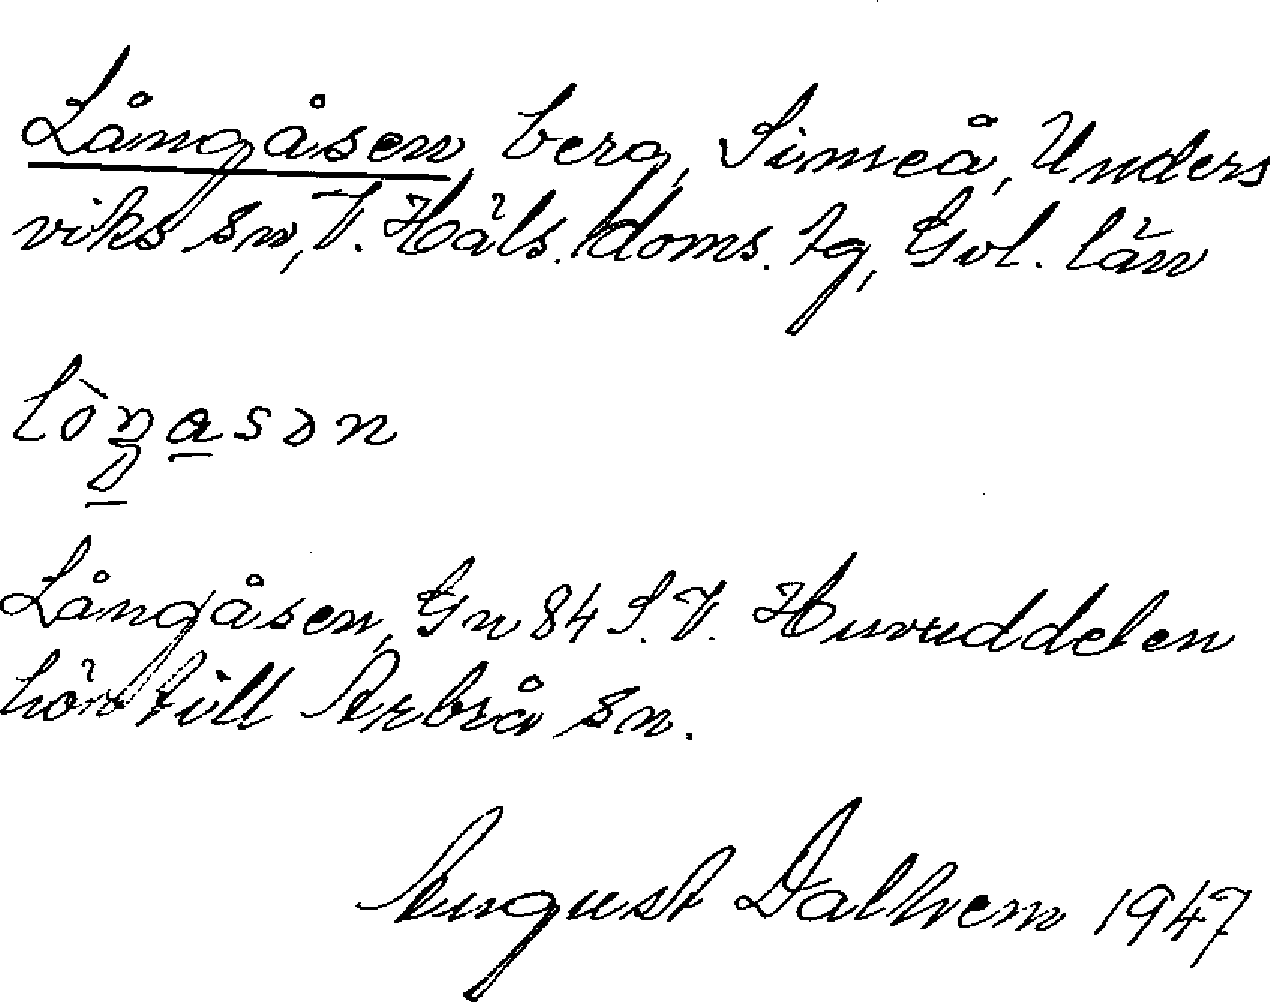 Långåsen, berg, Simeå, Unders
viks sn, V. Häls. doms. tg, Gvl. län
Långåsen, Gn 84 S.V. Huvuddelen
hör till Arbrå sn.
August Dalhem 1947